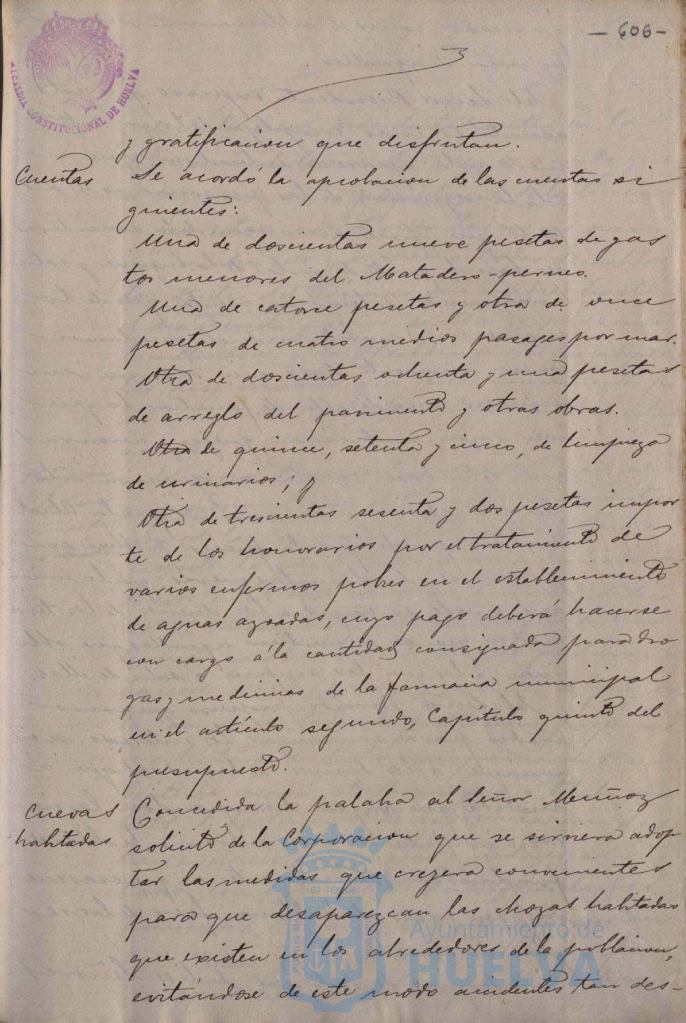 - 606 -
ALCALDIA CONSTITUCIONAL DE HUELVA
y gratificacion que disfrutan.
Cuentas Se acordó la aprobacion de las cuentas si
guientes:
Una de doscientas nueve pesetas de gas
tos menores del Matadero-perneo.
Una de catorce pesetas y otra de once
pesetas de cuatro medios pasages por mar.
Otra de doscientas ochenta y una pesetas
de arreglo del pavimento y otras obras.
Otra de quince, setenta y cinco, de limpieza
de urinarios; y
Otra de trescientas sesenta y dos pesetas impor
te de los honorarios por el tratamiento de
varios enfermos pobres en el establecimiento
de aguas azoadas, cuyo pago deberá hacerse
con cargo á la cantidad consignada para dro
gas y medicinas de la farmacia municipal
en el artículo segundo, Capítulo quinto del
presupuesto.
Cuevas habitadas Concedida la palabra al Señor Muñoz
solicitó de la Corporacion que se sirviera adop
tar las medidas que creyera convenientes
para que desaparezcan las chozas habitadas
que existen en los alrededores de la poblacion,
evitándose de este modo accidentes tan des-
Ayuntamiento de
HUELVA